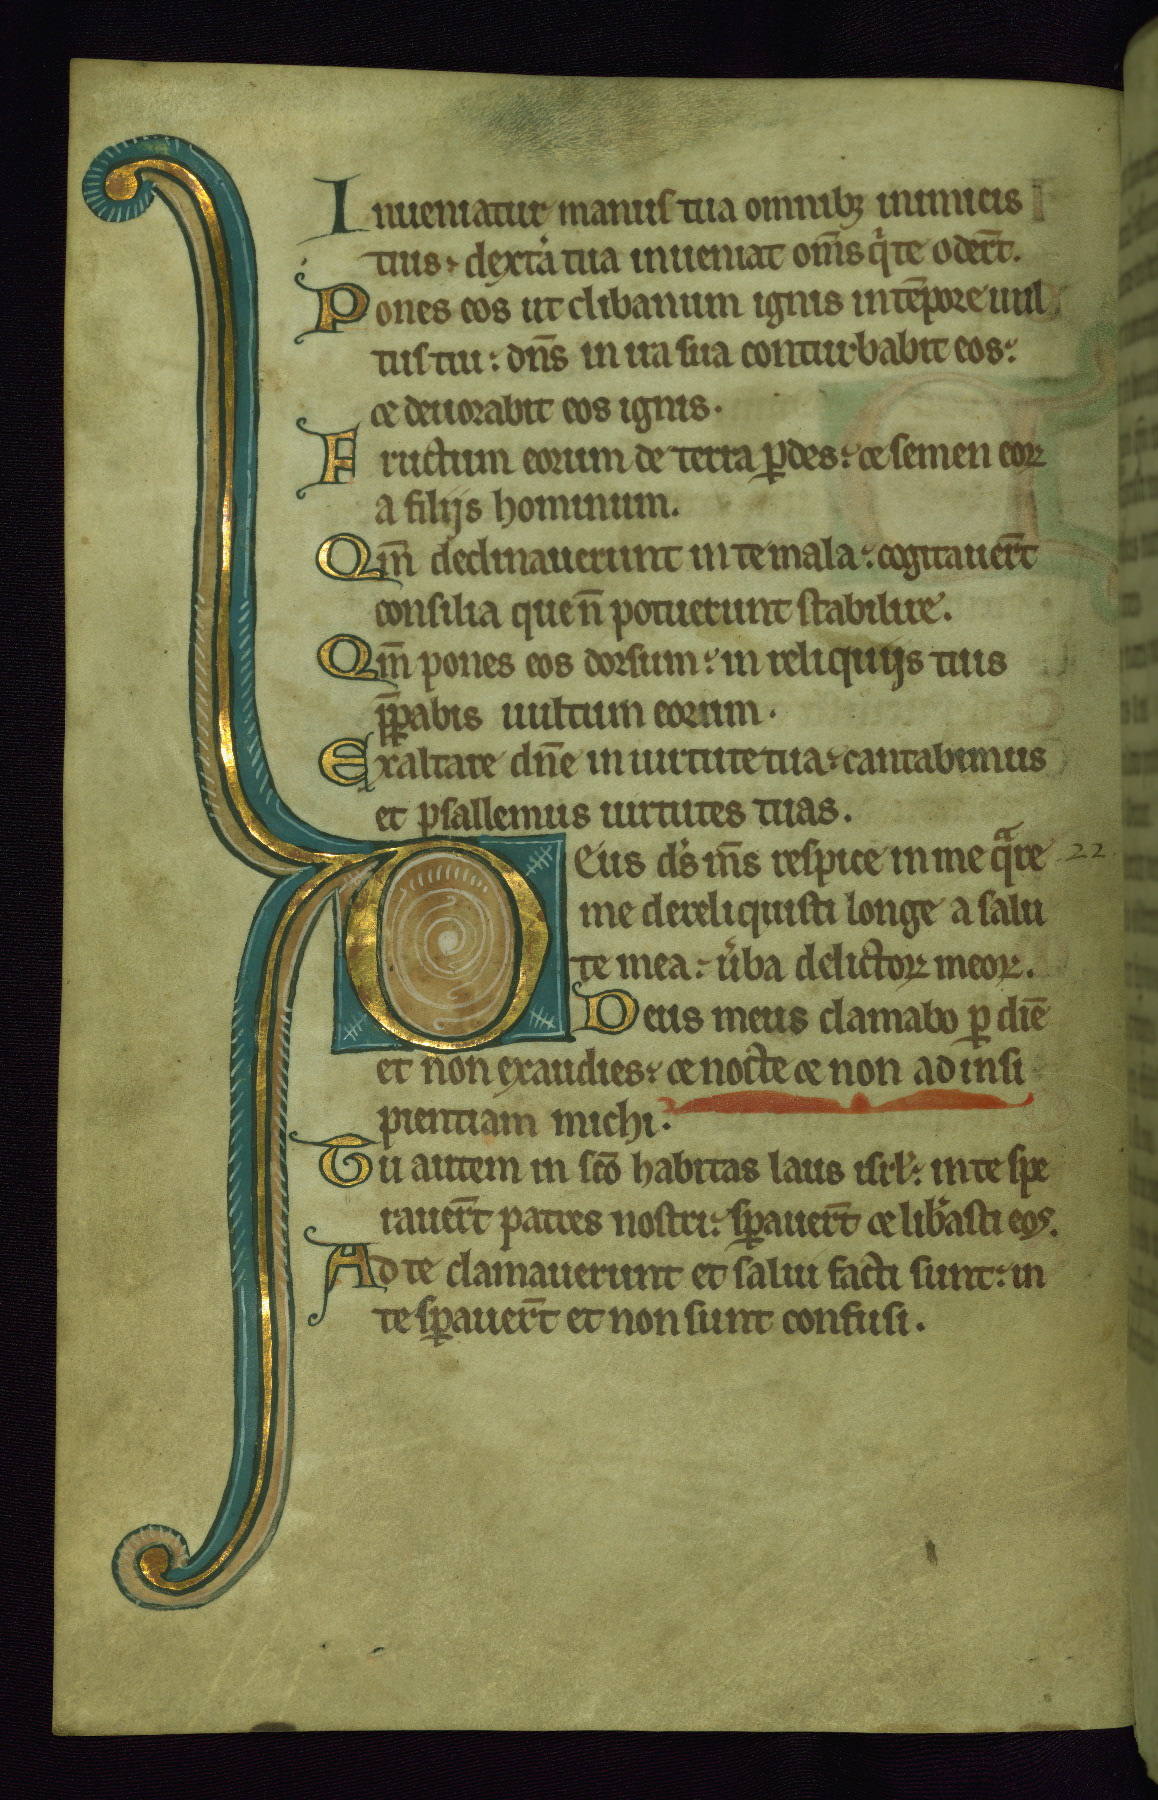 Inueniatur manus tua omnibꝫ inimicis
tuis: dext̾a tua inueniat om̅s q̾ te oder̅t.
Pones eos ut clibanum ignis in te̅pore uul
tus tui: dn̅s in ira sua conturbabit eos:
⁊ deuorabit eos ignis.
Fructum eorum de terra ꝑdes: ⁊ semen eoꝝ
a filijs hominum.
Qm̅ declinauerunt in te mala: cogitauer̅t
consilia que n̅ potuerunt stabilire.
Qm̅ pones eos dorsum: in reliquijs tuis
p̅ꝑabis uultum eorum.
Exaltare dn̅e in uirtute tua: cantabimus
et psallemus uirtutes tuas.
Deus d̾s m̅s respice in me q̾re 22
me dereliquisti longe a salu
te mea: u̾ba delictoꝝ meoꝝ.
Deus meus clamabo ꝑ die̅
et non exaudies: ⁊ nocte ⁊ non ad insi
pientiam michi.
Tu autem in sc̅o habitas laus isrl̾: in te spe
rauer̅t patres nostri: sꝑauer̅t ⁊ lib̾asti eos.
Ad te clamauerunt et salui facti sunt: in
te sꝑauer̅t et non sunt confusi.